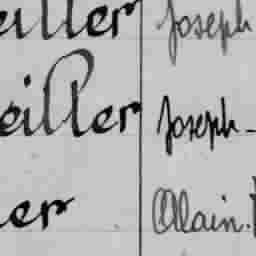 eiller Joseph
eiller Joseph-
er Alain.